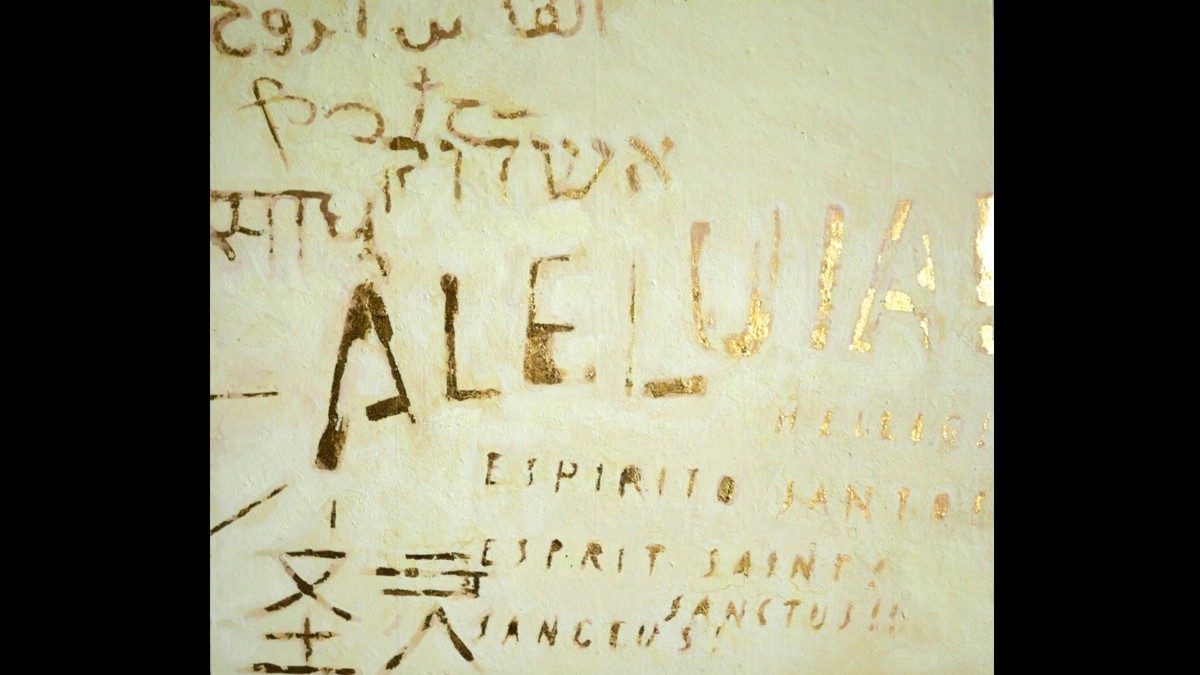 الروح
साधु
ALELUIA!
HEILIG!
ESPIRITO SANTO!
ESPRIT SAINT!
SANCTUS!!
SANCTUS!
圣灵